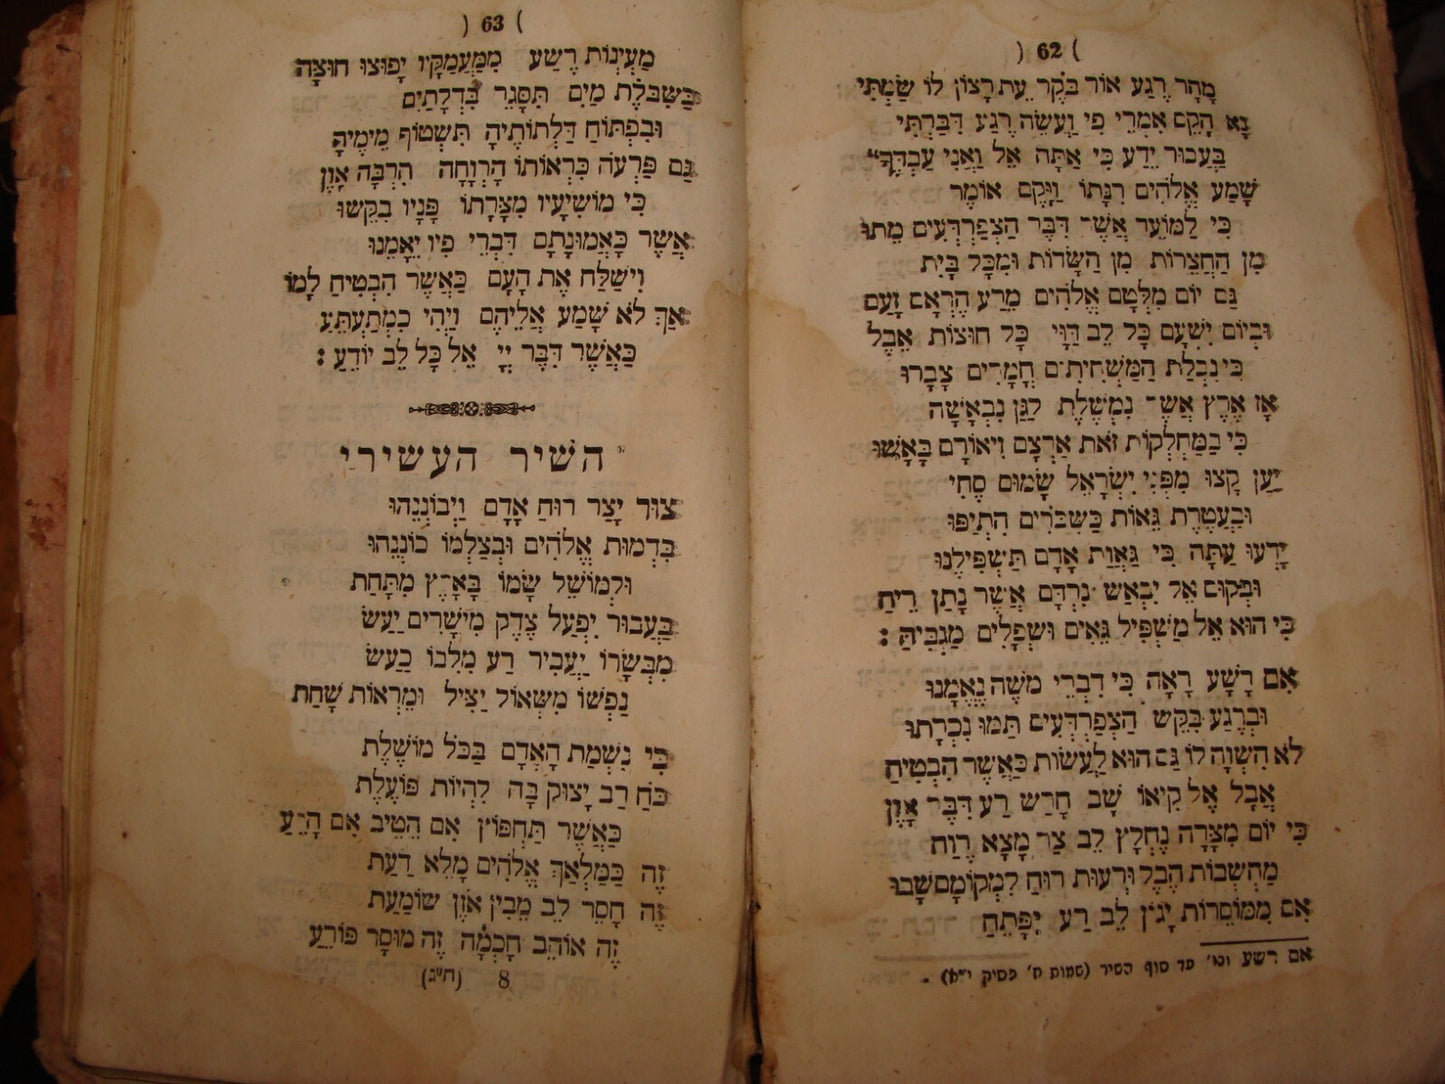 ( 62 )
מָחָר רֶגַע אוֹר בֹּקֶר עֵת רָצוֹן לוֹ שַׂמְתִּי
נָא הָקֵם אִמְרֵי פִי וַעֲשֵׂה רֶגַע דִּבַּרְתִּי
בַּעֲבוּר יֵדַע כִּי אַתָּה אֵל וַאֲנִי עַבְדֶּךָ״
שָׁמַע אֱלֹהִים רִנָּתוֹ וַיָּקֶם אוֹמֶר
כִּי לַמּוֹעֵד אֲשֶׁר דִּבֶּר הַצְפַרְדְּעִים מֵתוּ
מִן הַחֲצֵרוֹת מִן הַשָּׂדוֹת וּמִכָּל בָּיִת
גַּם יוֹם מִלְּטָם אֱלֹהִים מֵרַע הֶרְאָם זָעַם
וּבְיוֹם יִשְׁעָם כָּל לֵב דַּוָּי כָּל חוּצוֹת אֵבֶל
כִּי נִבְלַת הַמַּשְׁחִיתִים חֳמָרִים צָבָרוּ
אָז אֶרֶץ אֲשֶׁר נִמְשֶׁלֶת לַגַּן נִבְאָשָׁה
כִּי בַמַּחְלְקוֹת זֹאת אַרְצָם וִיאוֹרָם בָּאָשׁוּ
יַעַן קָצוּ מִפְּנֵי יִשְׂרָאֵל שָׂמוּם סְחִי
וּבַעֲטֶרֶת גֵּאוּת כַּשִּׁבֹּרִים הִתְיַפּוּ
יָדְעוּ עַתָּה כִּי גַּאֲוַת אָדָם תַּשְׁפִּילֶנּוּ
וּבְקוּם אֵל יִבְאַשׁ נִרְדָּם אֲשֶׁר נָתַן רֵיחַ
כִּי הוּא אֵל מַשְׁפִּיל גֵּאִים וּשְׁפָלִים מַגְבִּיהַּ :
אִם רָשָׁע רָאָה כִּי דִבְרֵי מֹשֶׁה נֶאֱמָנוּ
וּבְרֶגַע בִּקֵּשׁ הַצְפַרְדְּעִים תַּמּוּ נִכְרָתוּ
לֹא הִשְׁוָה לוֹ גַּם הוּא לַעֲשׂוֹת כַּאֲשֶׁר הִבְטִיחַ
אֲבָל אֶל קִיאוֹ שָׁב חָרַשׁ רַע דִּבֶּר אָוֶן
כִּי יוֹם מִצָּרָה נֶחְלַץ לֵב צַר מָצָא רֶוַח
מַחְשְׁבוֹת הֶבֶל וּרְעוּת רוּחַ לִמְקוֹמָם שָׁבוּ
אִם מִמּוֹסֵרוֹת יָגוֹן לֵב רַע יִפָּתֵחַ
אם רשע וכו׳ עד סוף השיר (שמות ח׳ פסיק י״א) .
( 63 )
מַעְיְנוֹת רֶשַׁע מִמַּעֲמַקָּיו יָפוּצוּ חוּצָה
כַּשִׁבֹּלֶת מַיִם תִּסָּגֵר בִּדְלָתַיִם
וּבִפְתוֹחַ דַּלְתוֹתֶיהָ תִּשְׁטוֹף מֵימֶיהָ
גַּם פַּרְעֹה כִּרְאוֹתוֹ הָרְוָחָה הִרְבָּה אָוֶן
כִּי מוֹשִׁיעָיו מִצָּרָתוֹ פָּנָיו בִּקֵּשׁוּ
אֲשֶׁר כָּאֱמוּנָתָם דִּבְרֵי פִיו יֵאָמֵנוּ
וִישַׁלַּח אֶת הָעָם כַּאֲשֶׁר הִבְטִיחַ לָמוֹ
אַךְ לֹא שָׁמַע אֲלֵיהֶם וַיְהִי כִמְתַעְתֵּעַ
כַּאֲשֶׁר דִּבֶּר יְיָ אֵל כָּל לֵב יוֹדֵעַ :
השיר העשירי
צוּר יָצַר רוּחַ אָדָם וַיְבוֹנְנֵהוּ
בִּדְמוּת אֱלֹהִים וּבְצַלְמוֹ כוֹנְנֵהוּ
וּלְמוֹשֵׁל שָׂמוֹ בָּאָרֶץ מִתָּחַת
בַּעֲבוּר יִפְעַל צֶדֶק מֵישָׁרִים יַעַשׂ
מִבְּשָׂרוֹ יַעֲבִיר רַע מִלִּבּוֹ כַעַשׂ
נַפְשׁוֹ מִשְּׁאוֹל יַצִּיל וּמֵרְאוֹת שָׁחַת
כִּי נִשְׁמַת הָאָדָם בַּכֹּל מוֹשֶׁלֶת
כֹּחַ רַב יָצוּק בָּהּ לִהְיוֹת פּוֹעֶלֶת
כַּאֲשֶׁר תַּחְפּוֹץ אִם הֵטִיב אִם הָרֵעַ
זֶה כַּמַלְאַךְ אֱלֹהִים מָלֵא דַעַת
זֶה חֲסַר לֵב מֵבִין אֹזֶן שׁוֹמַעַת
זֶה אוֹהֵב חָכְמָה זֶה מוּסָר פּוֹרֵעַ
8 (ח״ג)